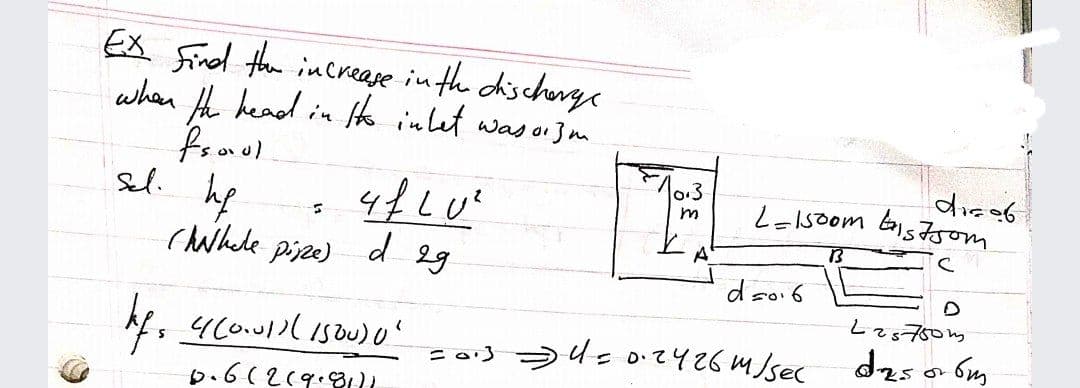 EX Find the increase in the discharge
when the head in the inlet was 0.3m
f=0.01
sol. hf = 4fLU²
(Whole pipe) d 2g
0.3
m
A
L=1500m
d1=0.6
L1=750m
B
C
d=0.6
D
L2=750m
d2=0.6m
hf = 4(0.01)(1500)U²
0.6(2(9.81))
=0.3 ⇒ U = 0.2426 m/sec